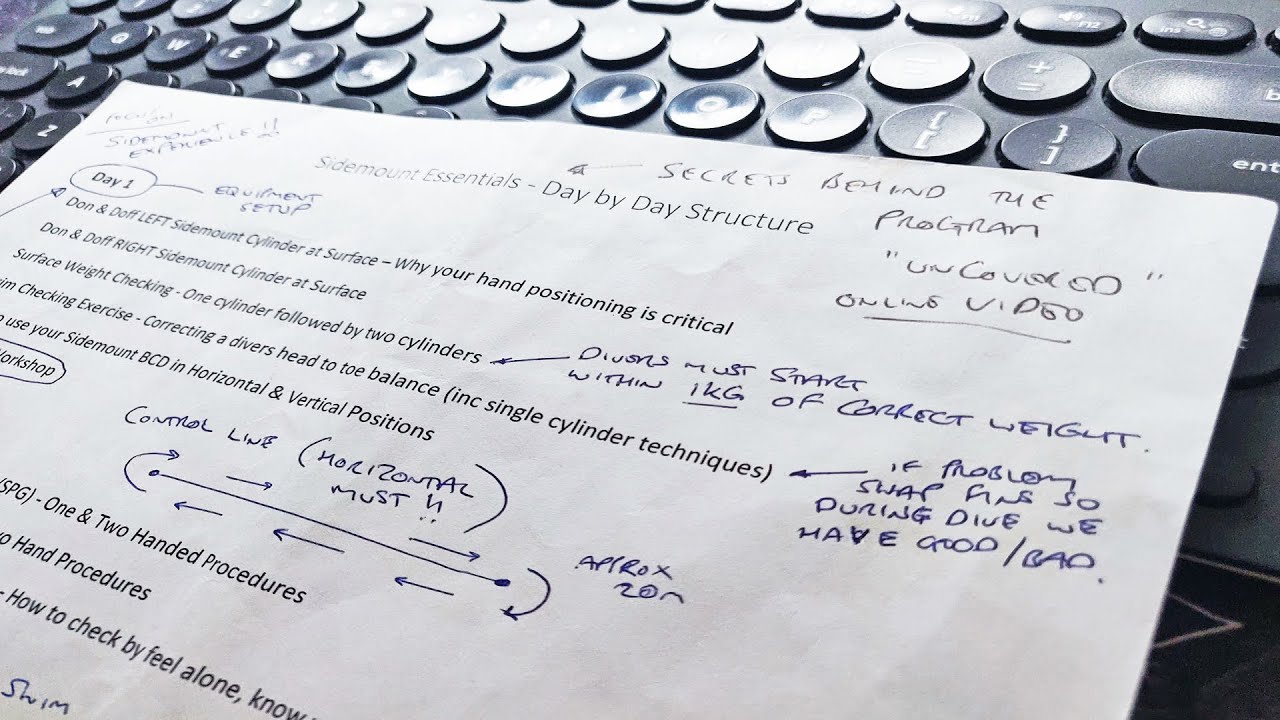 SIDEMOUNT
EXPERIENCE !!
Sidemount Essentials - Day by Day Structure
SECRETS BEHIND THE
PROGRAM
"UNCOVERED"
ONLINE VIDEO
Day 1
EQUIPMENT
SETUP
Don & Doff LEFT Sidemount Cylinder at Surface – Why your hand positioning is critical
Don & Doff RIGHT Sidemount Cylinder at Surface
Surface Weight Checking - One cylinder followed by two cylinders
DIVERS MUST START
WITHIN 1KG OF CORRECT WEIGHT.
Checking Exercise - Correcting a divers head to toe balance (inc single cylinder techniques)
IF PROBLEM
SWAP FINS SO
DURING DIVE WE
HAVE GOOD/BAD.
use your Sidemount BCD in Horizontal & Vertical Positions
Workshop
CONTROL LINE (HORIZONTAL
MUST !!)
APPROX
20m
(SPG) - One & Two Handed Procedures
Hand Procedures
- How to check by feel alone, know
SWIM
Q
W
E
A
Z
O
P
{
[
}
]
+
=
ent
ins